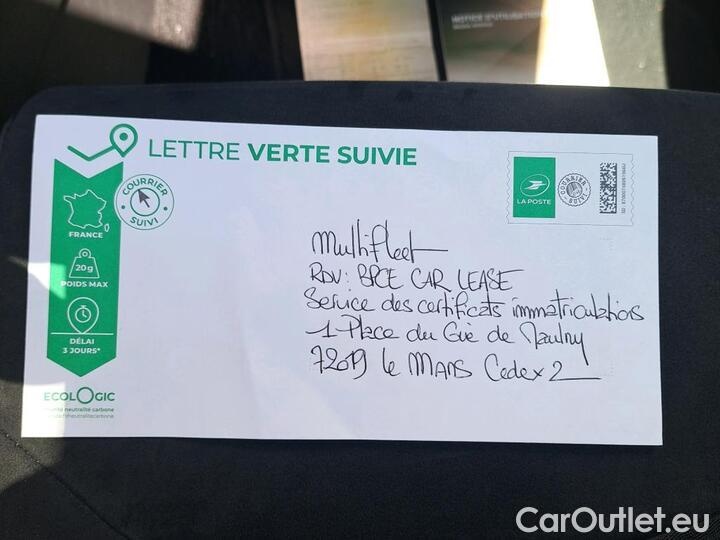 NOTICE D'UTILISATION
LETTRE VERTE SUIVIE
COURRIER
SUIVI
FRANCE
20g
POIDS MAX
DÉLAI
3 JOURS*
ECOLOGIC
neutralité carbone
LA POSTE
COURRIER
SUIVI
Multifleet
RDV: BPCE CAR LEASE
Service des certificats immatriculations
1 Place du Gué de Maulny
72019 le MANS Cedex 2
CarOutlet.eu